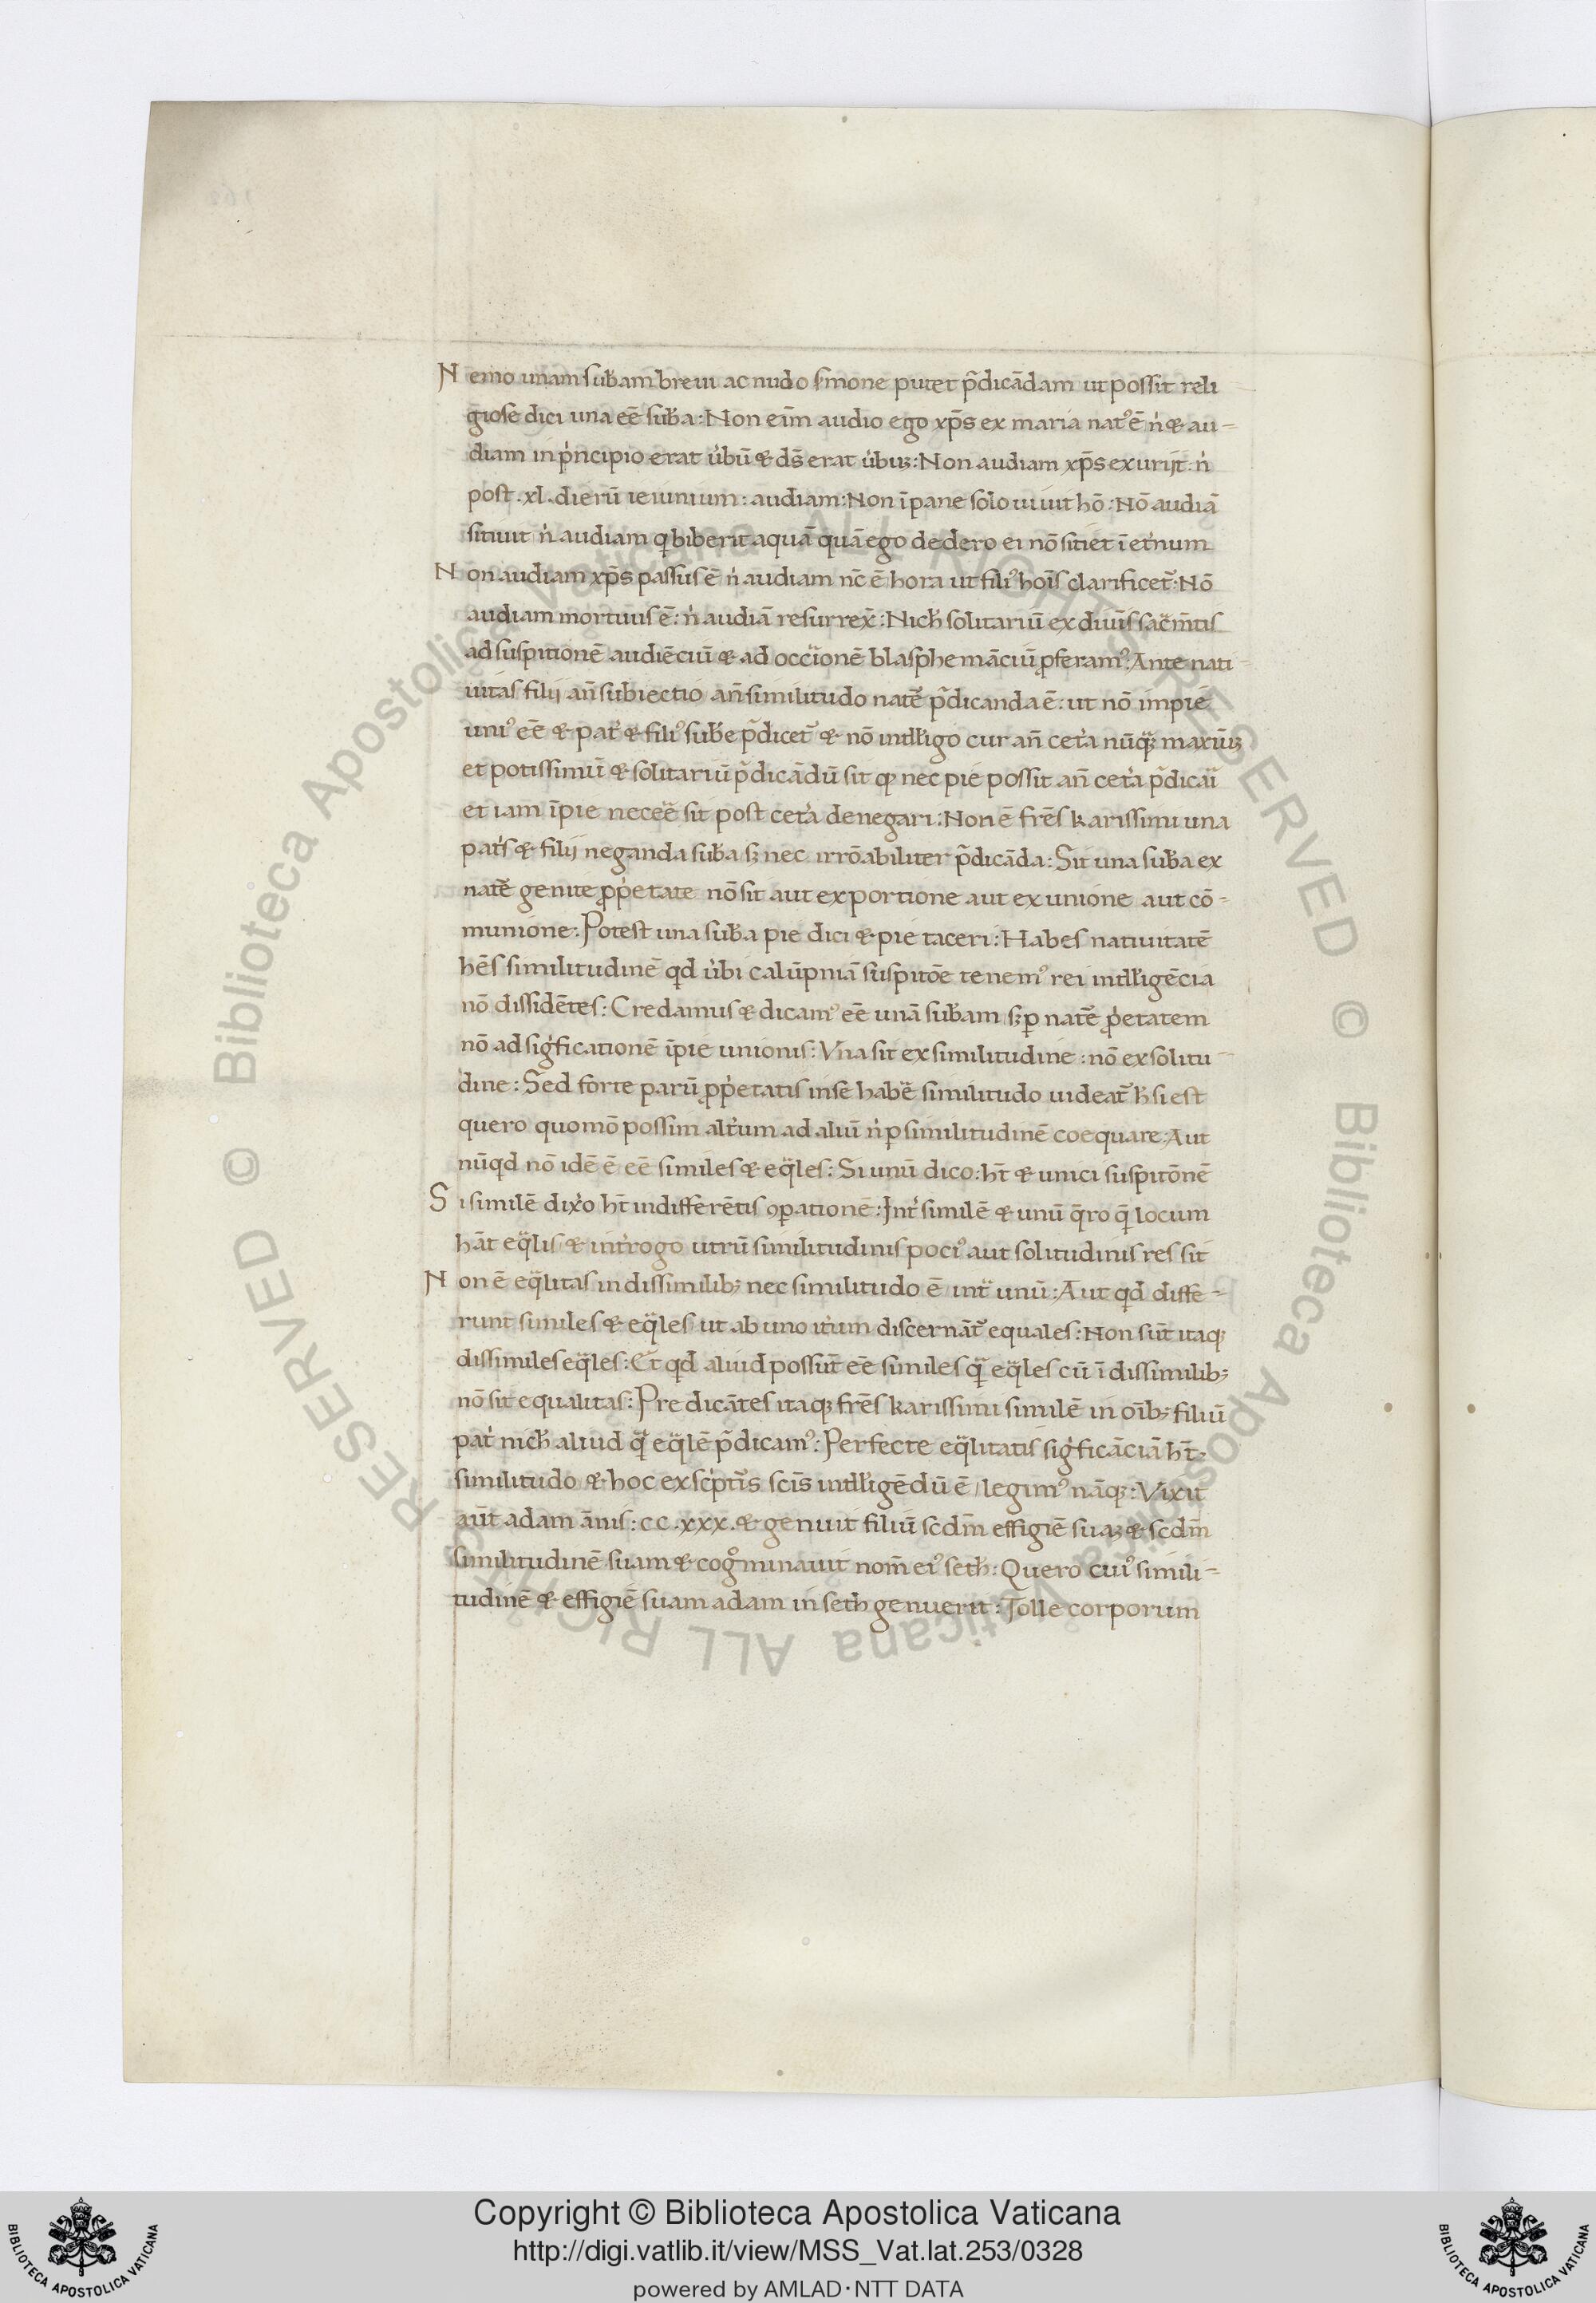 Nemo unam sub̄am breui ac nudo s̄mone putet p̄dicādam ut possit reli
giose dici una eē sub̄a: Non eīm audio ego xp̄s ex maria natꝰ ē n' & au-
diam in p'ncipio erat u'bū & ds̄ erat u'bū: Non audiam xp̄s exurijt n'
post .xl. dierū ieiunium: audiam: Non ī pane solo uiuit hō: Nō audiā
sitiuit n' audiam q biberit aquā quā ego dedero ei nō sitiet ī et'num
Non audiam xp̄s passus ē n' audiam nc̄ ē hora ut filiꝰ hoīs clarificet̄: Nō
audiam mortuus ē: n' audiā resurrex̄: Nich' solitariū ex diuīs sac̄m̄tis
ad suspitionē audiēciū & ad occīonē blasphemāciū ꝓferamꝰ: Ante nati-
uitas filij an̄ subiectio an̄ similitudo natē p̄dicanda ē: ut nō impie
uniꝰ eē & pat' & filiꝰ sub̄e p̄dicet̄ & nō intll'igo cur an̄ cet'a nūqꝫ maxūꝫ
et potissimū & solitariū p̄dicādū sit qꝫ nec pie possit an̄ cet'a p̄dicaī
et iam īpie neceē sit post cet'a denegari: Non ē frēs karissimi una
pat's & filij neganda sub̄a sꝫ nec irrōabiliter p̄dicāda: Sit una sub̄a ex
natē genite ꝓp'etate nō sit aut ex portione aut ex unione aut cō-
munione: Potest una sub̄a pie dici & pie taceri: Habes natiuitatē
hēs similitudinē qd u'bi calūpniā suspitōe tenemꝰ rei intll'igēcia
nō dissidētes: Credamus & dicamꝰ eē unā sub̄am sꝫ ꝑ natē ꝓ'etatem
nō ad sig'ficationē īpie unionis: Vna sit ex similitudine: nō ex solitu-
dine: Sed forte parū ꝓp'etatis in se habē similitudo uideat̄ h' si est
quero quomō possim alt'um ad aliū n' ꝑ similitudinē coequare: Aut
nūqd nō idē ē eē similes & eq̄les: Si unū dico: ht̄ & unici suspitōnē
Si similē dix'o ht̄ indifferētis ꝯꝑationē: Int' similē & unū q̄ro q̄ locum
hāt eq̄lis & int'rogo utrū similitudinis pociꝰ aut solitudinis res sit
Non ē eq̄litas in dissimilibꝫ nec similitudo ē int̄ unū: Aut qd diffe-
runt similes & eq̄les ut ab uno it'um discernāt̄ equales: Non sūt itaqꝫ
dissimiles eq̄les: Et qd aliud possūt eē similes q̄ eq̄les cū ī dissimilibꝫ
nō sit equalitas: Predicātes itaqꝫ frēs karissimi similē in oībꝫ filiū
pat' nich' aliud q̄ eq̄lē p̄dicamꝰ: Perfecte eq̄litatis sig'ficāciā ht̄
similitudo & hoc ex sc'pt̄is scīs intll'igēdū ē / legimꝰ nāqꝫ: Vixit
aūt adam ānis: cc.xxx. & genuit filiū scdm̄ effigiē suaꝫ & scdm̄
similitudinē suam & cogn̊minauit nom̄ eiꝰ seth: Quero cuiꝰ simili-
tudinē & effigiē suam adam in seth genuerit: Tolle corporum
Copyright © Biblioteca Apostolica Vaticana
http://digi.vatlib.it/view/MSS_Vat.lat.253/0328
powered by AMLAD·NTT DATA